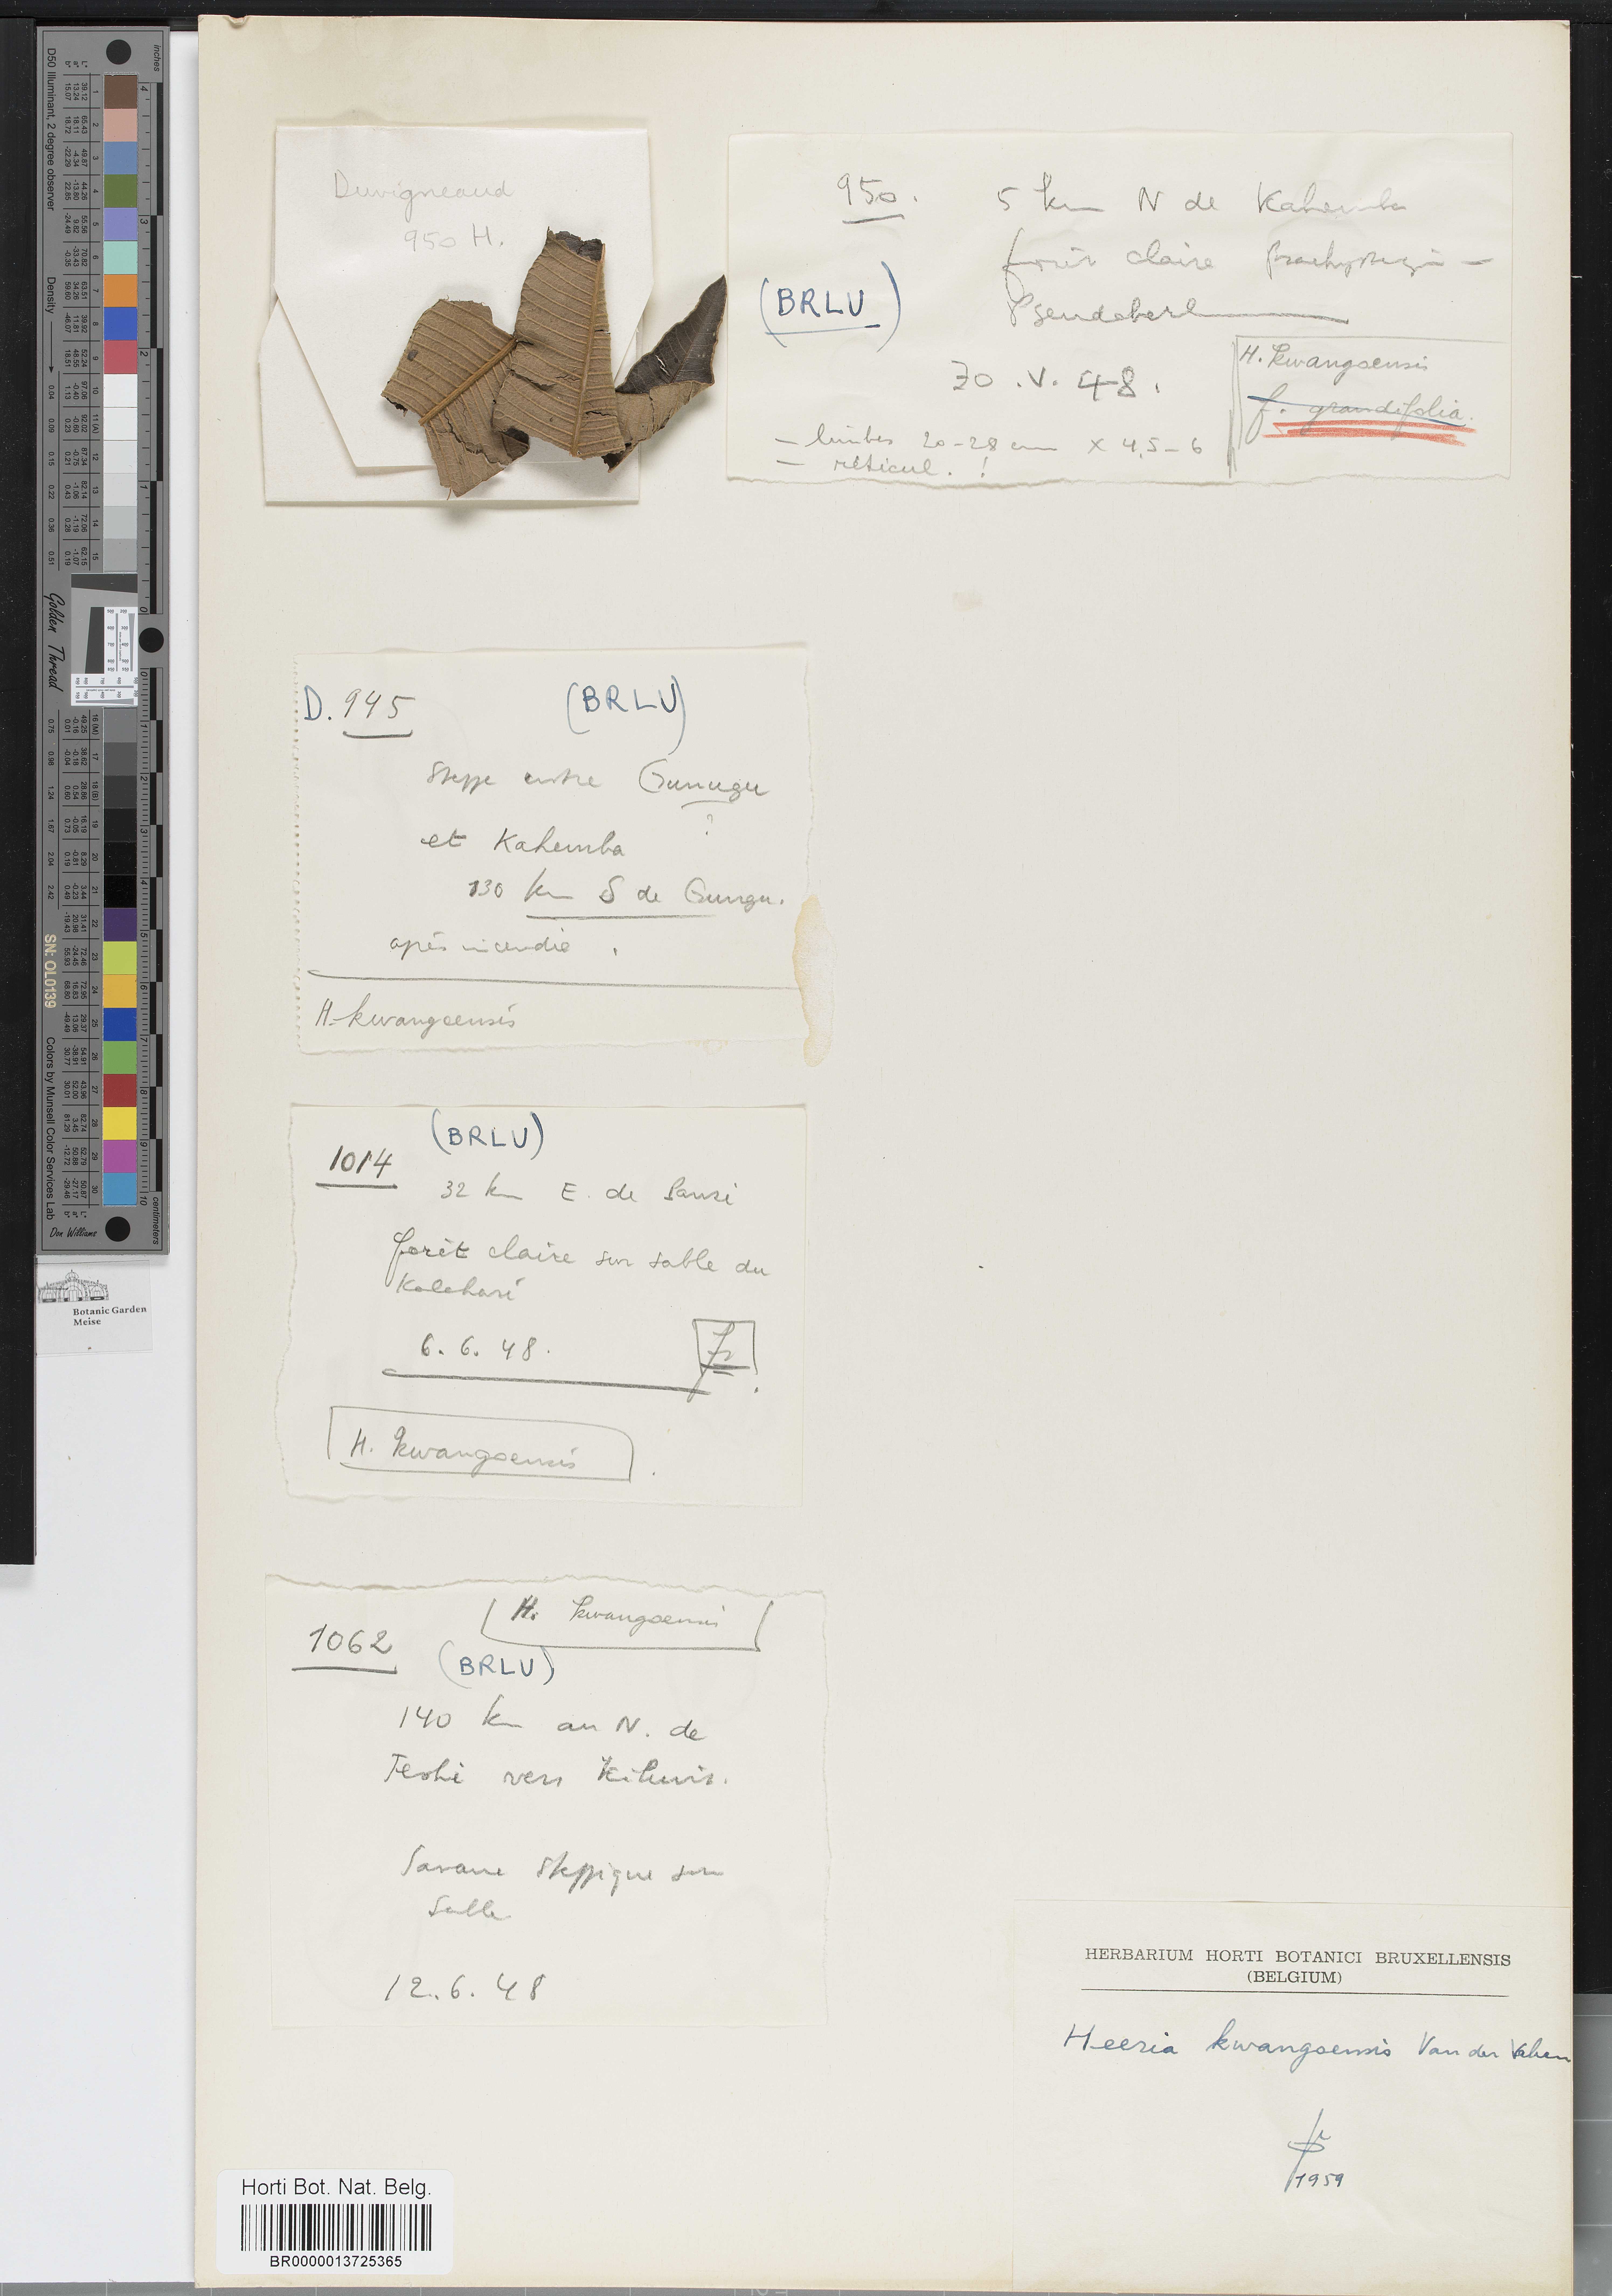 Duvigneaud
950 H.
950. 5 km N de Kahemba
forêt claire Brachystegia -
Pseudoberl
(BRLU)
30.V.48.
H. kwangoensis
f. grandifolia.
- limbes 20-28 cm x 4,5-6
- réticul. !
D. 945 (BRLU)
Steppe entre Gunugu
?
et Kahemba
130 km S de Gungu.
après incendie.
H. kwangoensis
(BRLU)
1014
32 km E. de
forêt claire sur sable du
Kalahari
6.6.48.
fr
H. kwangoensis.
H. kwangoensis
1062
(BRLU)
140 km au N. de
vers
Savane steppique sur
Sable
12.6.48
HERBARIUM HORTI BOTANICI BRUXELLENSIS
(BELGIUM)
Heeria kwangoensis Van der Veken
1959
Horti Bot. Nat. Belg.
BR0000013725365
Botanic Garden
Meise
Golden Thread
D50 Illuminant, 2 degree observer
Density
SN: OL0139
Colors by Munsell Color Services Lab
Don Williams
inches
centimeters